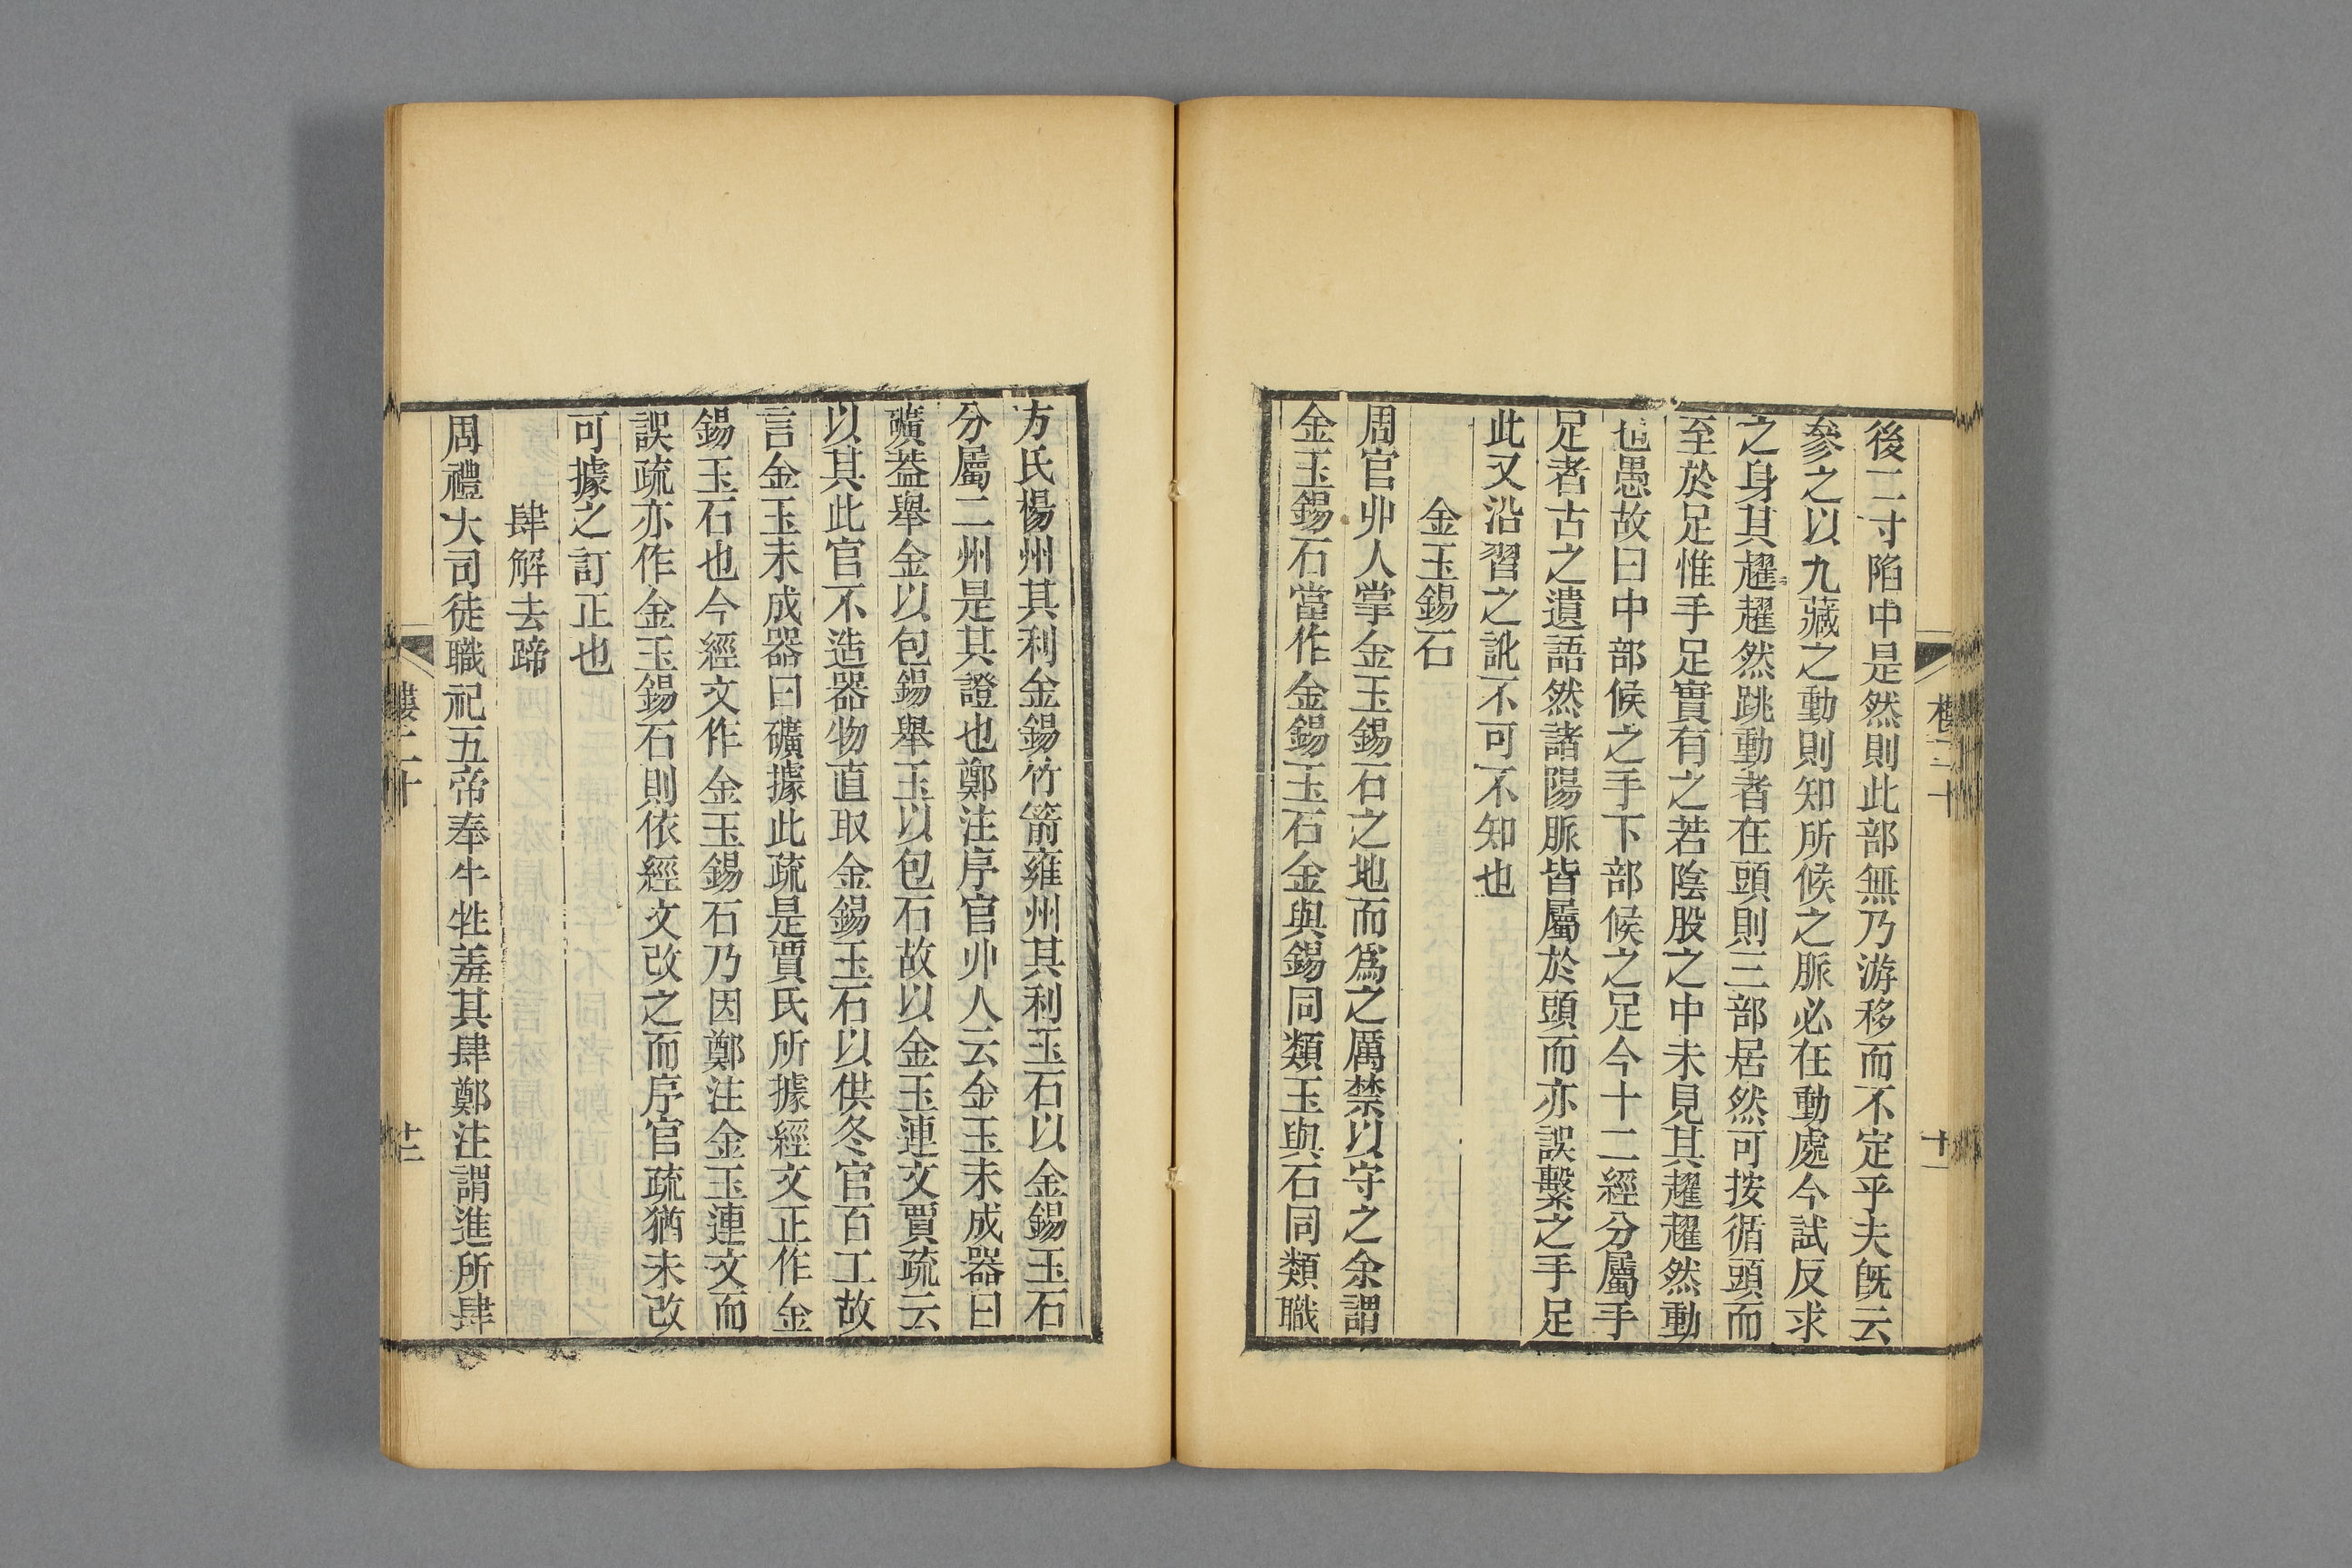 後二寸陷中是然則此部無乃游移而不定乎夫旣云
參之以九藏之動則知所候之脈必在動處今試反求
之身其趯趯然跳動者在頭則三部居然可按循頭而
至於足惟手足實有之若陰股之中未見其趯趯然動
也愚故曰中部候之手下部候之足今十二經分屬手
足者古之遺語然諸陽脈皆屬於頭而亦誤繫之手足
此又沿習之訛不可不知也
金玉錫石
周官丱人掌金玉錫石之地而爲之厲禁以守之余謂
金玉錫石當作金錫玉石金與錫同類玉與石同類職
方氏楊州其利金錫竹箭雍州其利玉石以金錫玉石
分屬二州是其證也鄭注序官丱人云金玉未成器曰
礦葢舉金以包錫舉玉以包石故以金玉連文賈疏云
以其此官不造器物直取金錫玉石以供冬官百工故
言金玉未成器曰礦據此疏是賈氏所據經文正作金
錫玉石也今經文作金玉錫石乃因鄭注金玉連文而
誤疏亦作金玉錫石則依經文改之而序官疏猶未改
可據之訂正也
肆解去蹄
周禮大司徒職祀五帝奉牛牲羞其肆鄭注謂進所肆